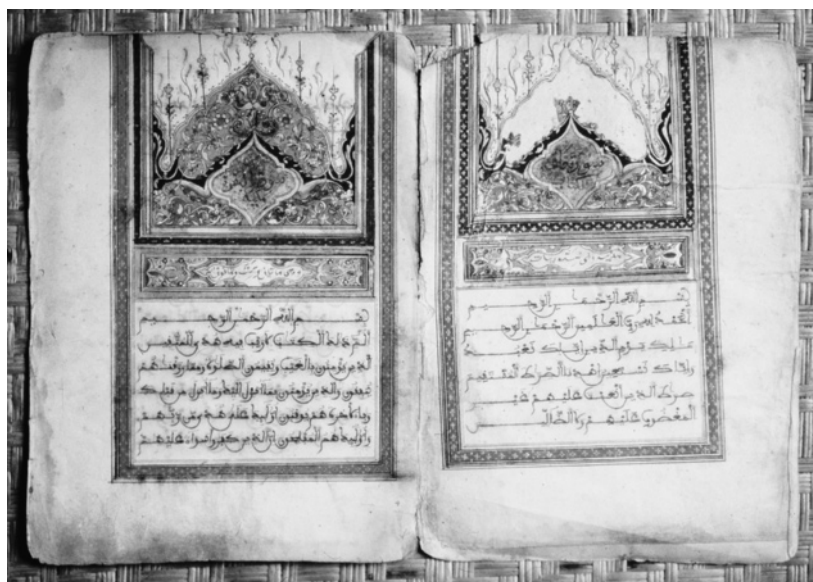 بسم الله الرحمن الرحيم
الحمد لله رب العالمين الرحمن الرحيم
ملك يوم الدين إياك نعبد
وإياك نستعين اهدنا الصراط المستقيم
صراط الذين أنعمت عليهم غير
المغضوب عليهم ولا الضالين
بسم الله الرحمن الرحيم
الم ذلك الكتب لا ريب فيه هدى للمتقين
الذين يؤمنون بالغيب ويقيمون الصلوة ومما رزقنهم
ينفقون والذين يؤمنون بما أنزل إليك وما أنزل من قبلك
وبالأخرة هم يوقنون أولئك على هدى من ربهم
وأولئك هم المفلحون إن الذين كفروا سواء عليهم